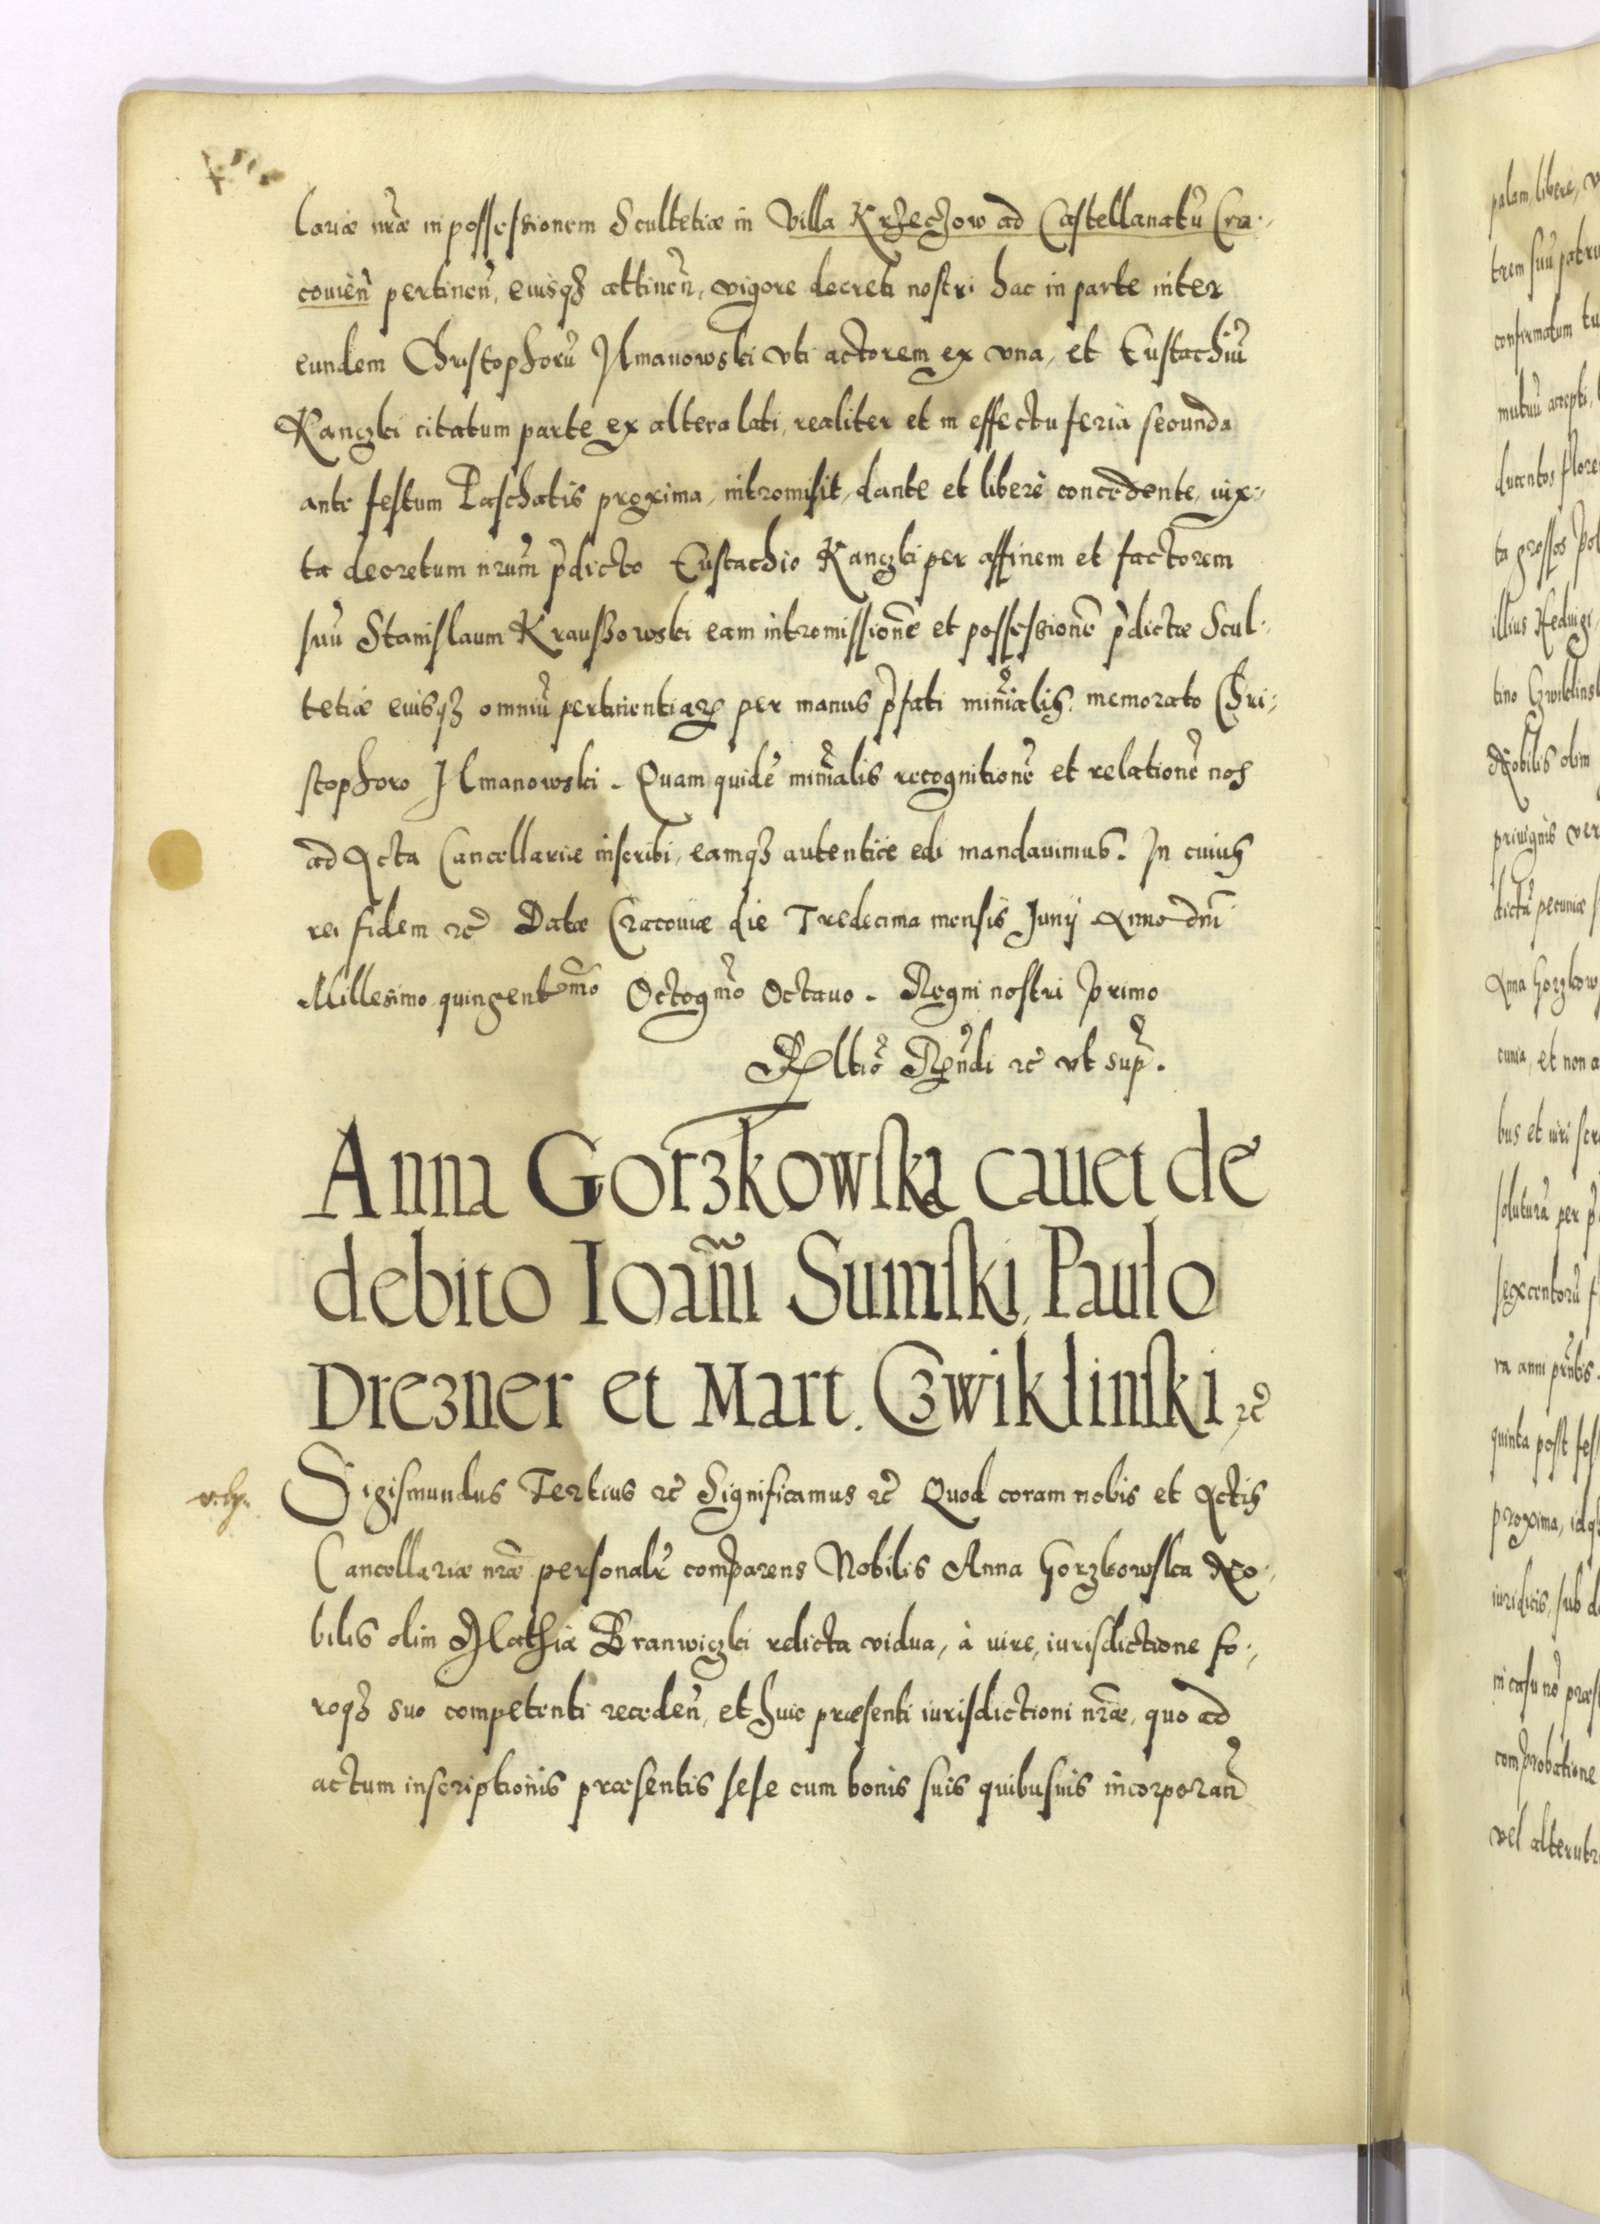 lariæ nræ in possessionem Scultetiæ in Villa Krzeczow ad Castellanatũ Cra-
couieñ pertineñ, eiusq₃ attineñ, vigore decreti nostri hac in parte inter
eundem Christophorũ Jlmanowski vti actorem ex vna, et Eustachiũ
Kanczki citatum parte ex altera lati, realiter et in effectu feria secunda
ante festum Paschatis proxima, intromisit, dante et liberè concedente, iux-
ta decretum nrũm p̃dicto Eustachio Kanczki per affinem et factorem
suũ Stanislaum Krausßowski eam intromissionẽ et possessionẽ p̃dictæ Scul-
tetiæ eiusq₃ omniũ pertinentiaꝝ per manus p̃fati min̄ialis memorato Chri-
stophoro Jlmanowski. Quam quidẽ min̄ialis recognitionẽ et relationẽ nos
ad Acta Cancellariæ inscribi, eamq₃ autenticè edi mandauimus. In cuius
rei fidem ꝛc̃ Datæ Cracouiæ die Tredecima mensis Junij Anno dñi
Millesimo quingentmõ Octogmõ Octauo. Regni nostri Primo
Rltiõ Rñdi ꝛc̃ vt sup̃.
Anna Gorzkowska cauet de
debito Ioañi Sumski, Paulo
Drezner et Mart. Czwiklinski ꝛc̃
Sigismundus Tertius ꝛc̃ Significamus ꝛc̃ Quod coram nobis et Actis
Cancellariæ nræ personalr̃ comparens Nobilis Anna Gorzkowska No-
bilis olim Mathiæ Branwiczki relicta vidua, à iure, iurisdictione fo-
roq₃ suo competenti recedeñ, et huic præsenti iurisdictioni nræ, quo ad
actum inscriptionis præsentis sese cum bonis suis quibusuis incorporañ
palam, libere, v
trem suũ patru
confirmatum tu
mutuũ accepti,
ducentos flore
ta grossos Pol
illius Heduigi,
tino Czwiklinsk
Nobilis olim
priuignis ver
dictã pecuniæ
Anna Gorzkow
cunia, et non a
bus et iuri scr
soluturã per
sexcentorũ f
ra anni
quinta post fes
proxima, idq₃
iuridicis, sub
in casu nõ præs
comprobatione
vel alterutr